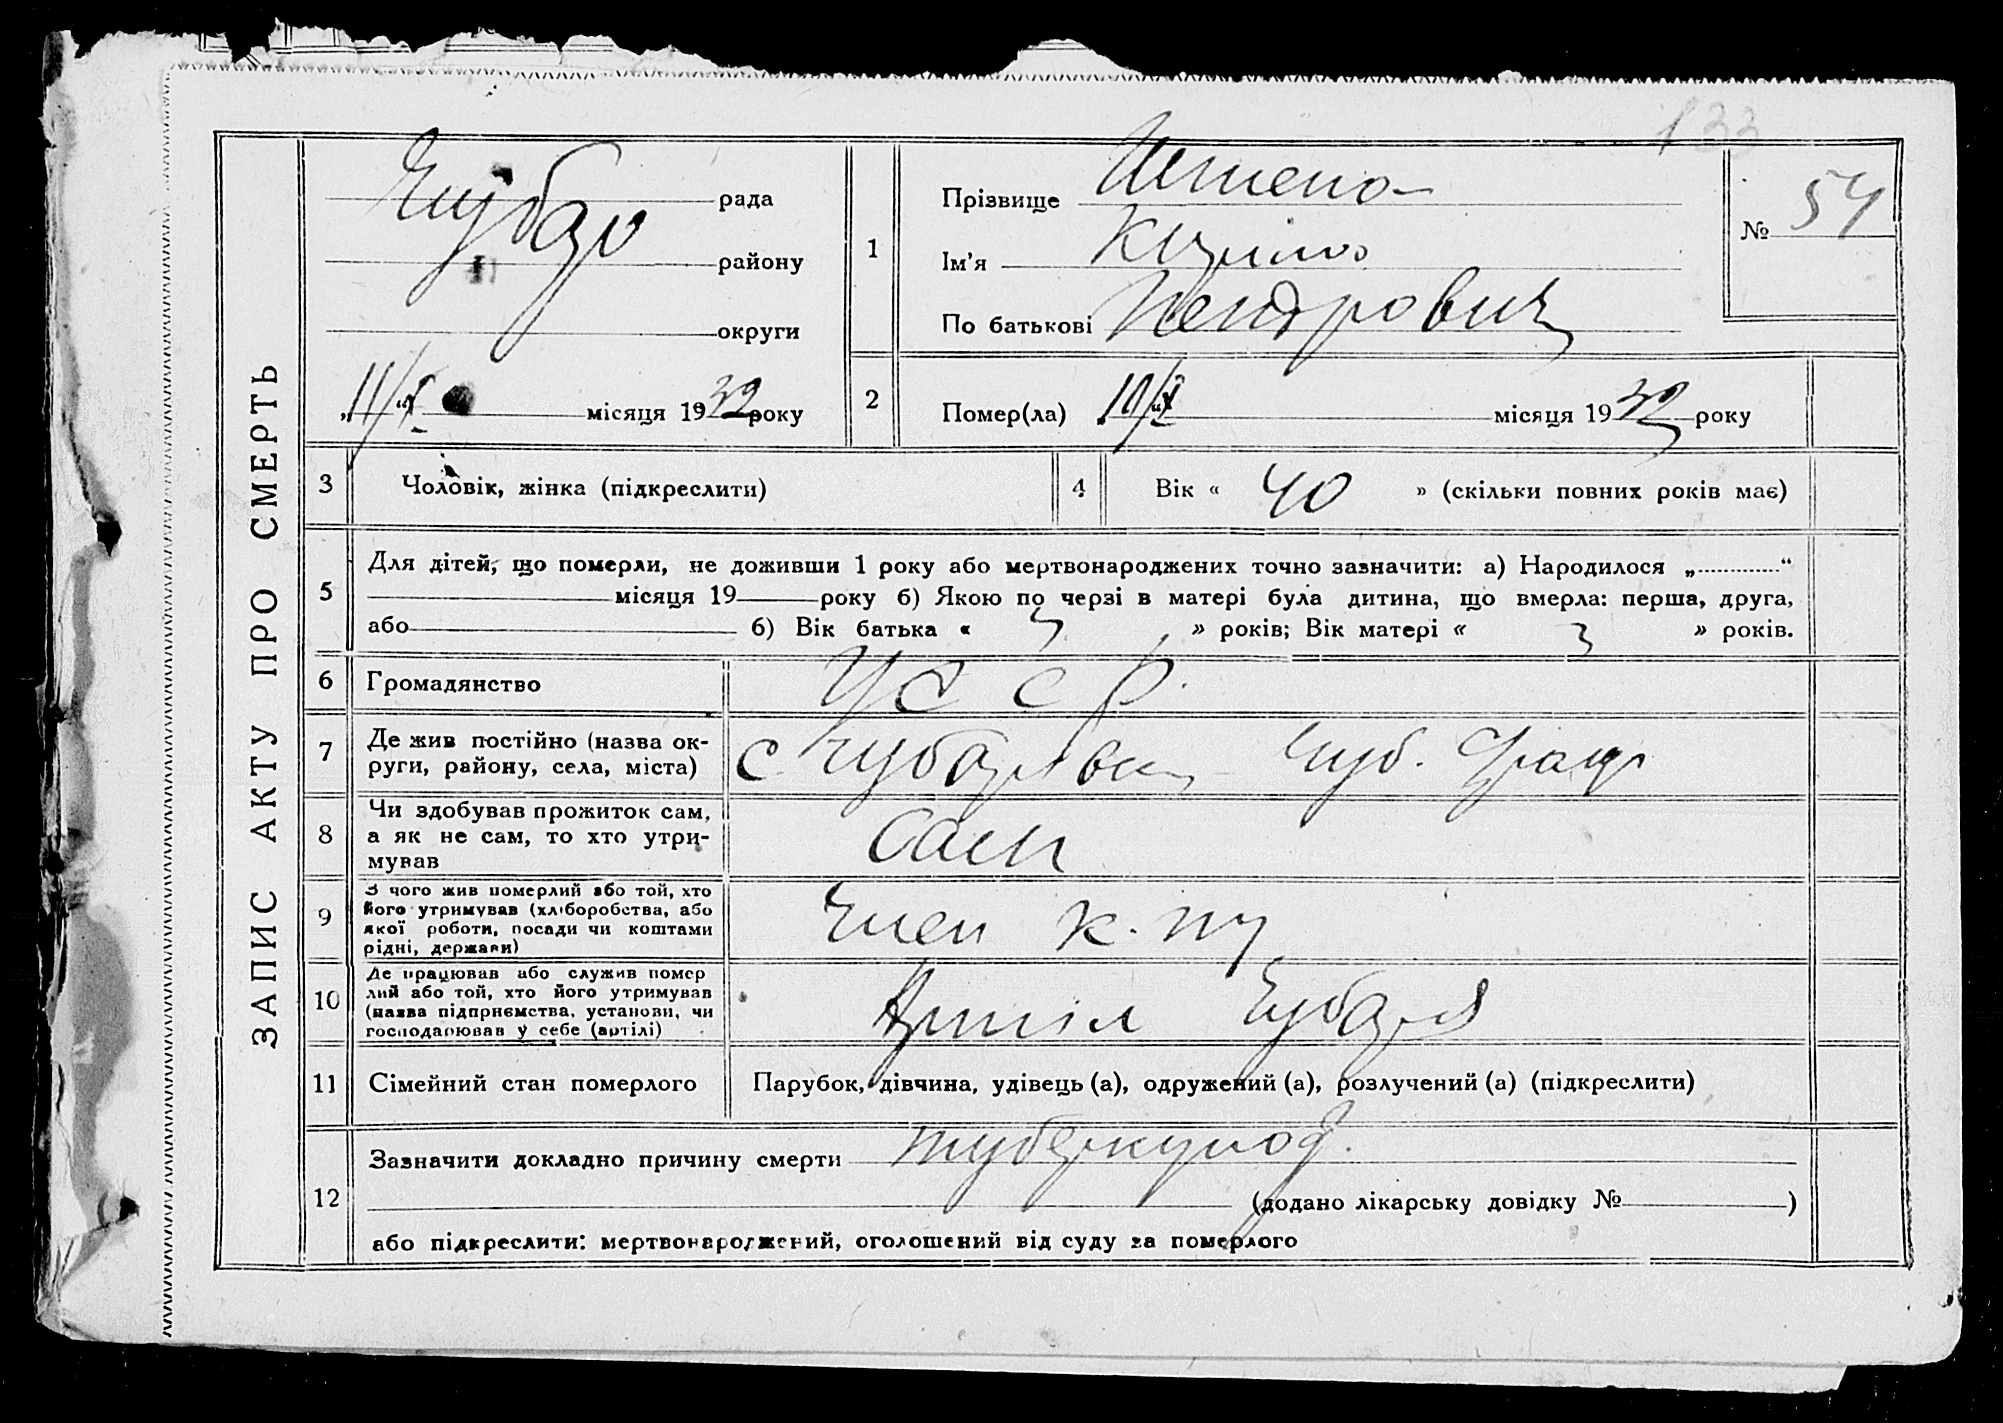 133
ЗАПИС АКТУ ПРО СМЕРТЬ
Чубар рада
району
округи
„11/X“ місяця 1932 року
1
Прізвище
Ім'я Кирило
По батькові
№ 54
2 Помер(ла) „10/X“ місяця 1932 року
3 Чоловік, жінка (підкреслити)
4 Вік « 40 » (скільки повних років має)
5 Для дітей, що померли, не доживши 1 року або мертвонароджених точно зазначити: а) Народилося „ “
місяця 19 року б) Якою по черзі в матері була дитина, що вмерла: перша, друга,
або б) Вік батька « » років; Вік матері « » років.
6 Громадянство УССР
7 Де жив постійно (назва ок-
руги, району, села, міста) с Чубарівка Чуб. району
8 Чи здобував прожиток сам,
а як не сам, то хто утри-
мував
Сам
9 З чого жив померлий або той, хто
його утримував (хліборобства, або
якої роботи, посади чи коштами
рідні, держави)
Член к.
10 Де працював або служив помер
лий або той, хто його утримував
(назва підприємства, установи, чи
господарював у себе (артілі)
Артіл Чубаря
11 Сімейний стан померлого Парубок, дівчина, удівець (а), одружений (а), розлучений (а) (підкреслити)
12 Зазначити докладно причину смерти туберкульоз.
(додано лікарську довідку № )
або підкреслити: мертвонароджений, оголошений від суду за померлого